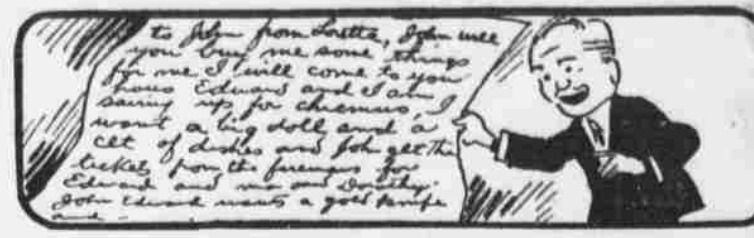 to John from Loretta, John will
you buy me some things
for me I will come to your
hous Edward and I am
saving up for chrismus, I
want a big doll and a
cet of dishes and Joh get the
tickets from the firemens for
Edward and ma and Dorothy.
John Edward wants a gold knife
and